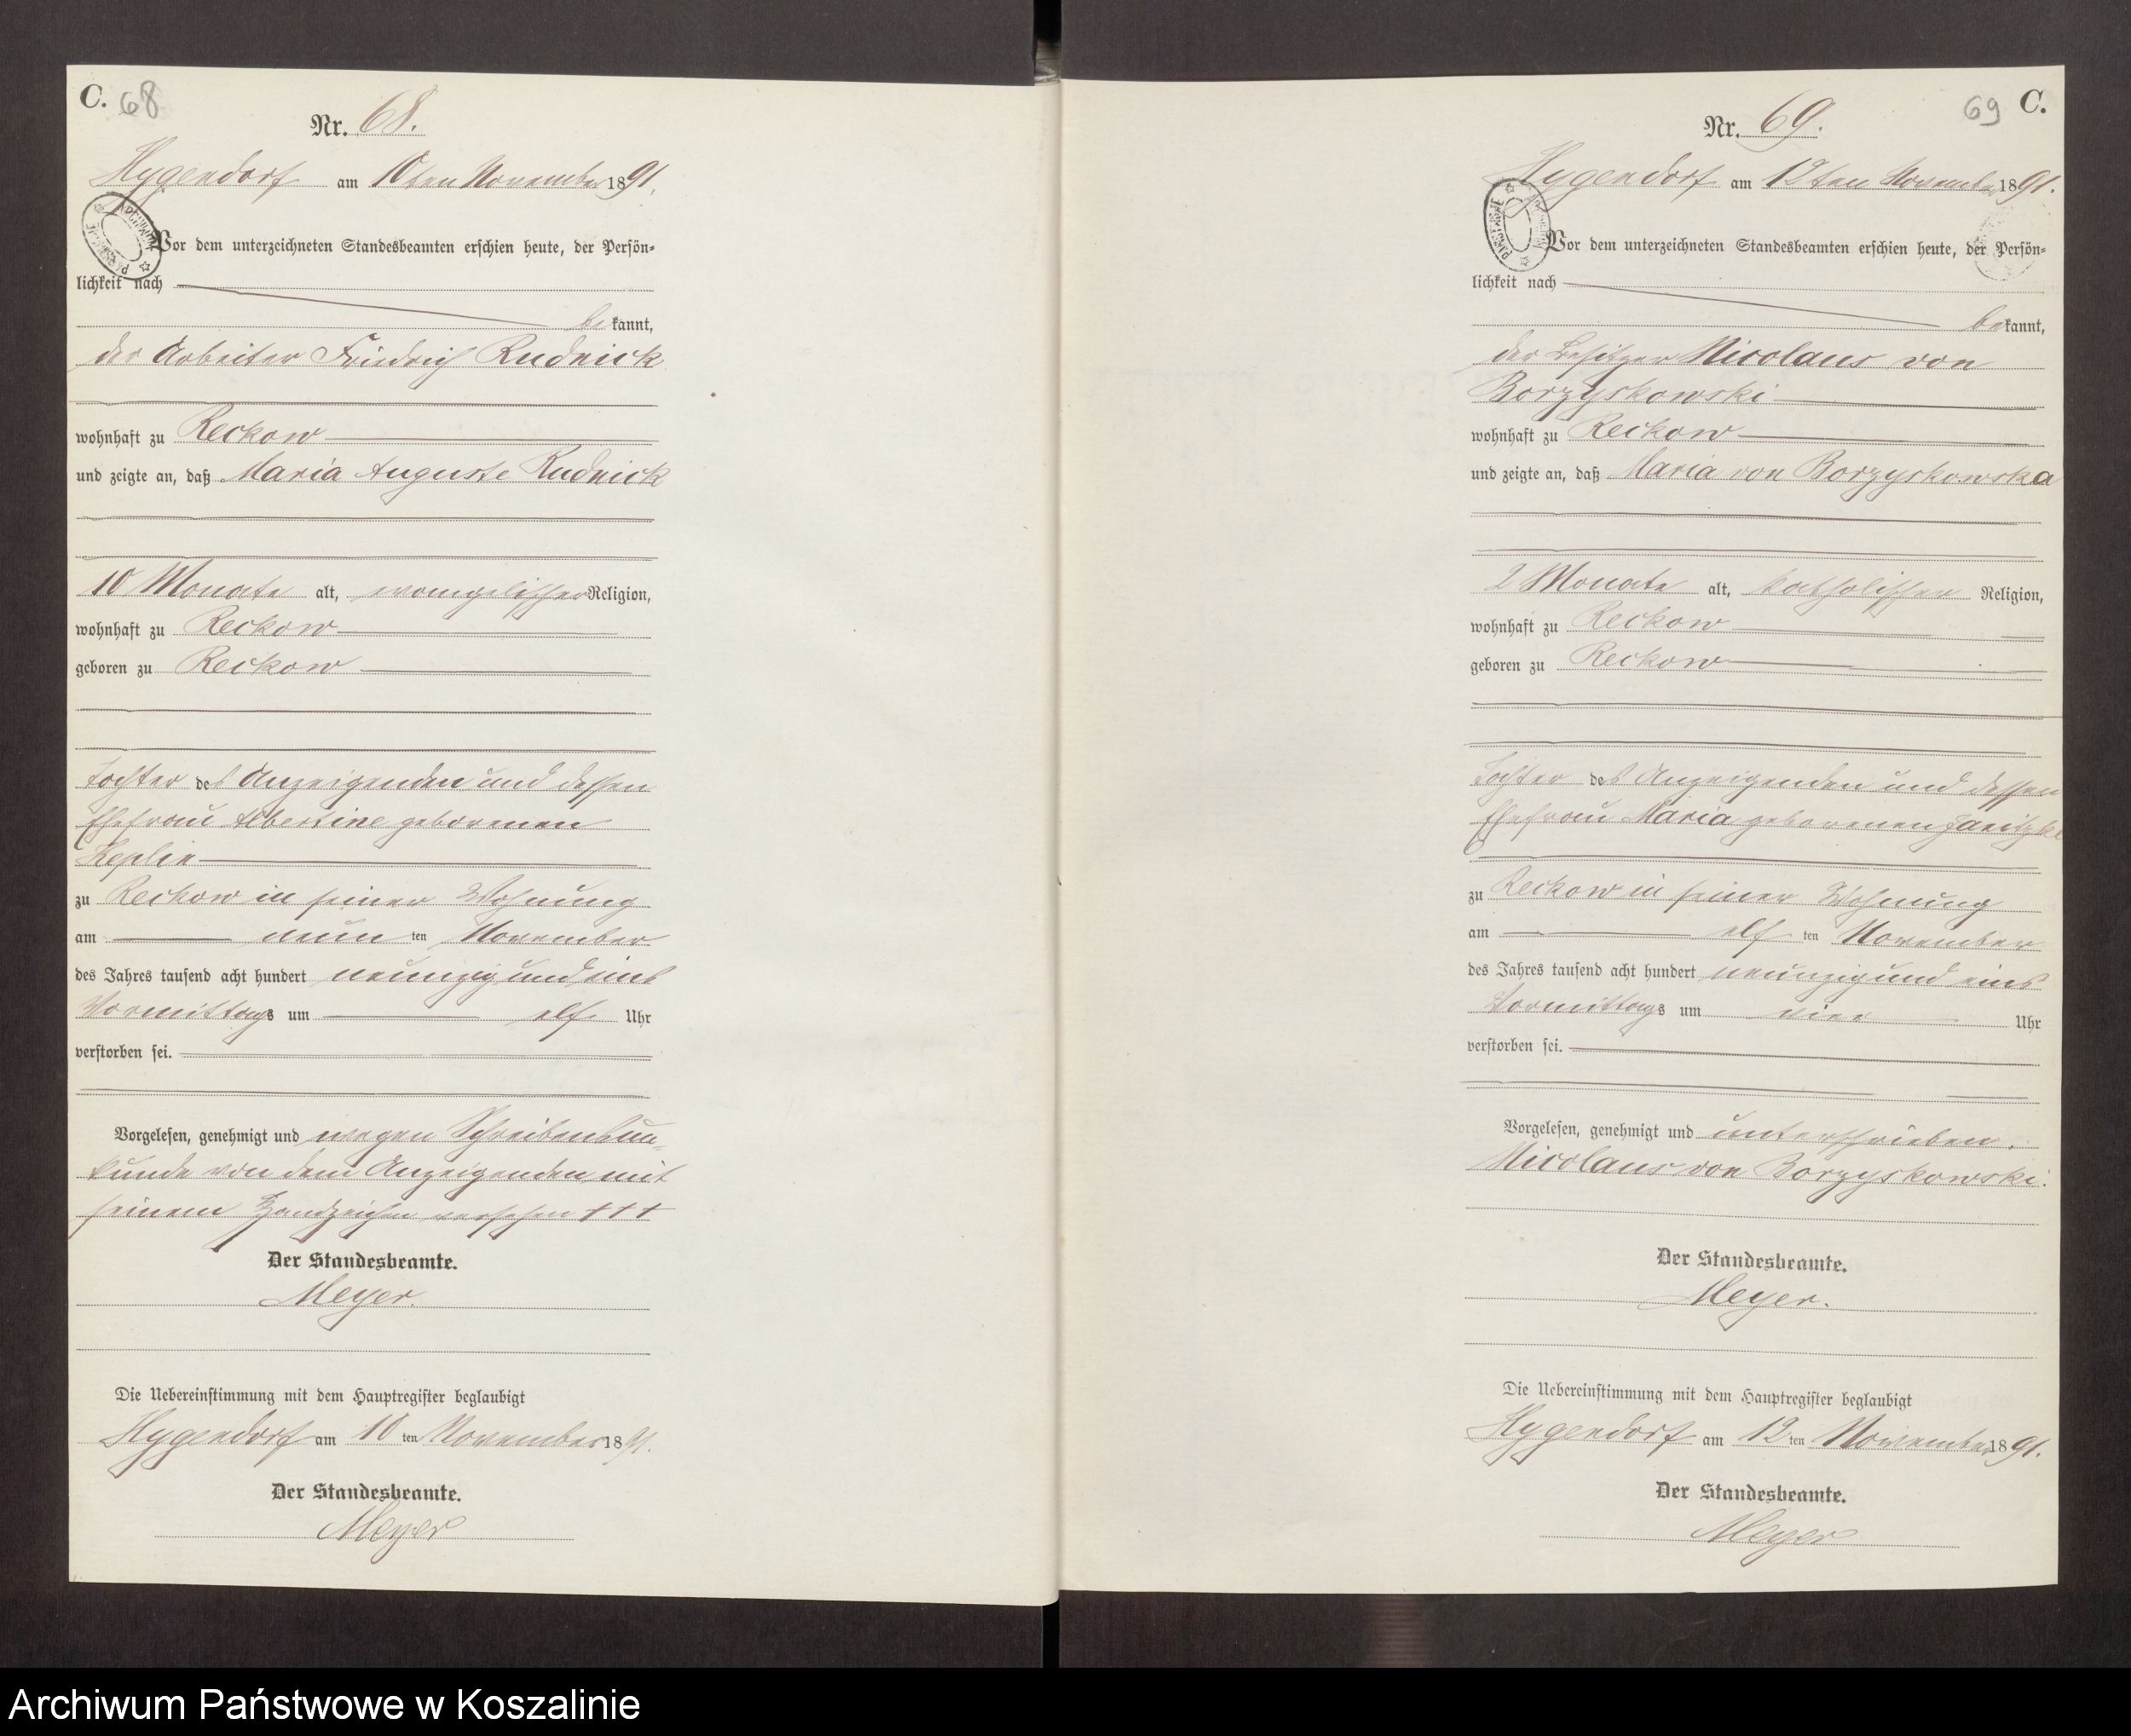 C. 68
Nr. 68.
Hygendorf am 10ten November 1891.
Vor dem unterzeichneten Standesbeamten erschien heute, der Persön-
lichkeit nach
bekannt,
der Arbeiter Friedrich Rudnick
wohnhaft zu Reckow
und zeigte an, daß Maria Auguste Rudnick
10 Monate alt, evangelischer Religion,
wohnhaft zu Reckow
geboren zu Reckow
Tochter des Anzeigenden und dessen
Ehefrau Albertine geborenen
Keplin
zu Reckow in seiner Wohnung
am neun ten November
des Jahres tausend acht hundert neunzig und eins
Vormittags um elf Uhr
verstorben sei.
Vorgelesen, genehmigt und wegen Schreibensun-
kunde von dem Anzeigenden mit
seinem Handzeichen versehen +++
Der Standesbeamte.
Meyer.
Die Uebereinstimmung mit dem Hauptregister beglaubigt
Hygendorf am 10 ten November 1891.
Der Standesbeamte.
Meyer
69 C.
Nr. 69.
Hygendorf am 12ten November 1891.
Vor dem unterzeichneten Standesbeamten erschien heute, der Persön-
lichkeit nach
bekannt,
der Besitzer Nicolaus von
Borzyskowski
wohnhaft zu Reckow
und zeigte an, daß Maria von Borzyskowska
2 Monate alt, katholischer Religion,
wohnhaft zu Reckow
geboren zu Reckow
Tochter des Anzeigenden und dessen
Ehefrau Maria geborenen
zu Reckow in seiner Wohnung
am elf ten November
des Jahres tausend acht hundert neunzig und eins
Vormittags um vier Uhr
verstorben sei.
Vorgelesen, genehmigt und unterschrieben.
Nicolaus von Borzyskowski.
Der Standesbeamte.
Meyer.
Die Uebereinstimmung mit dem Hauptregister beglaubigt
Hygendorf am 12 ten November 1891.
Der Standesbeamte.
Meyer
Archiwum Państwowe w Koszalinie